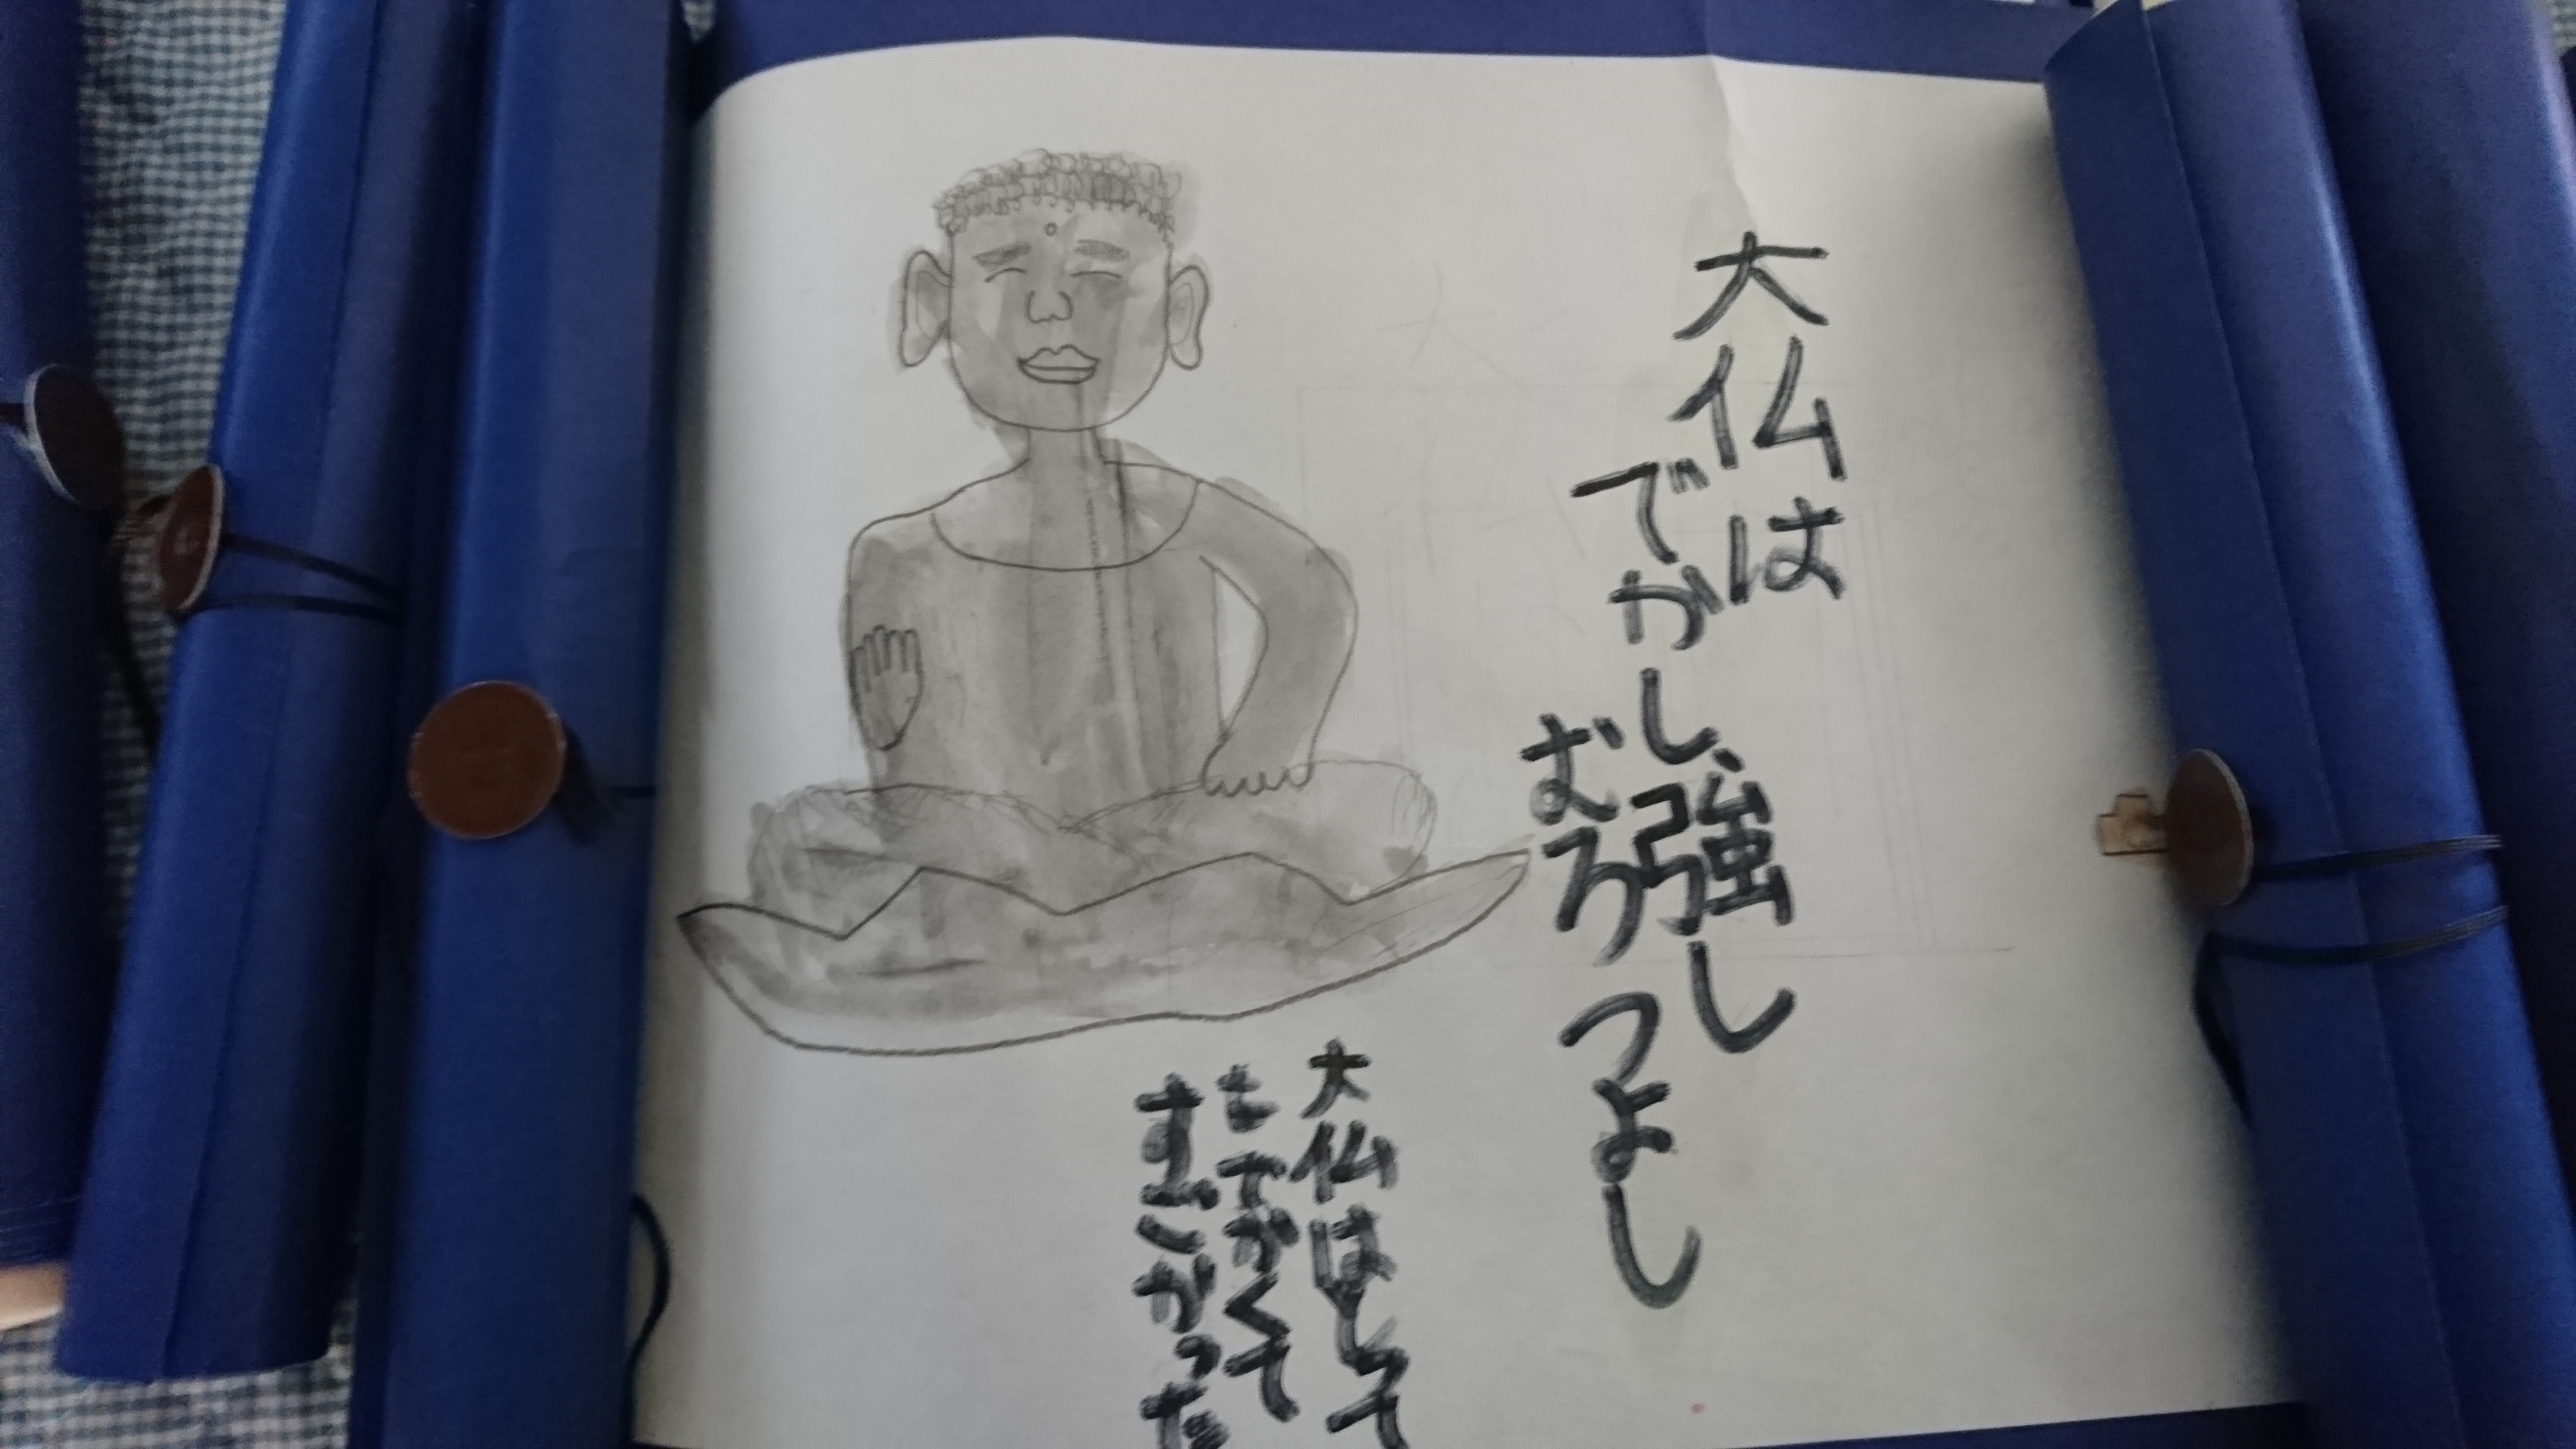 大仏は
でかし、強し
むろつよし
大仏はとて
もでかくて
すごかった